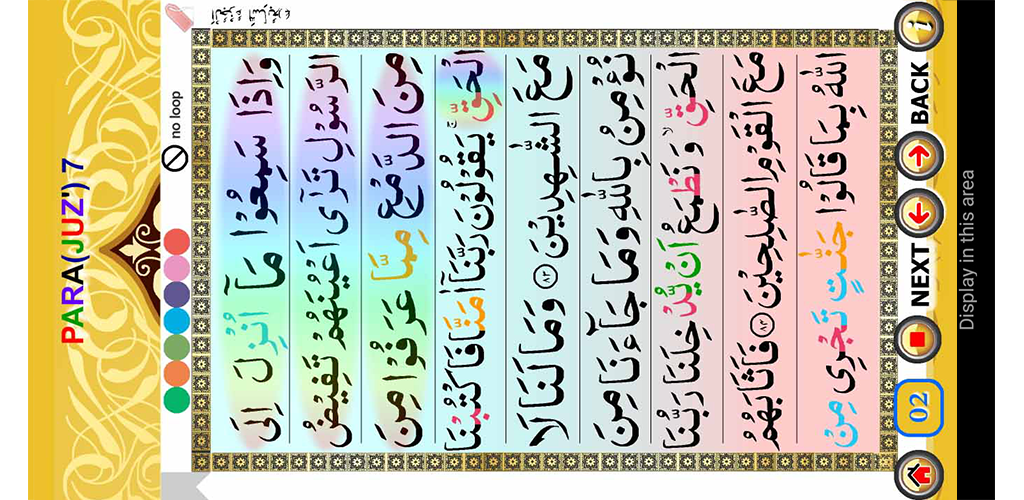 PARA(JUZ') 7
no loop
وَاِذَا سَمِعُوْا مَآ اُنْزِلَ اِلَى
الرَّسُوْلِ تَرٰٓى اَعْيُنَهُمْ تَفِيْضُ
مِنَ الدَّمْعِ مِمَّا عَرَفُوْا مِنَ
الْحَقِّ ۚ يَقُوْلُوْنَ رَبَّنَآ اٰمَنَّا فَاكْتُبْنَا
مَعَ الشّٰهِدِيْنَ ۝۸۳ وَمَا لَنَا لَا
نُؤْمِنُ بِاللّٰهِ وَمَا جَآءَنَا مِنَ
الْحَقِّ ۙ وَنَطْمَعُ اَنْ يُّدْخِلَنَا رَبُّنَا
مَعَ الْقَوْمِ الصّٰلِحِيْنَ ۝۸۴ فَاَثَابَهُمُ
اللّٰهُ بِمَا قَالُوْا جَنّٰتٍ تَجْرِيْ مِنْ
02 NEXT BACK i
Display in this area